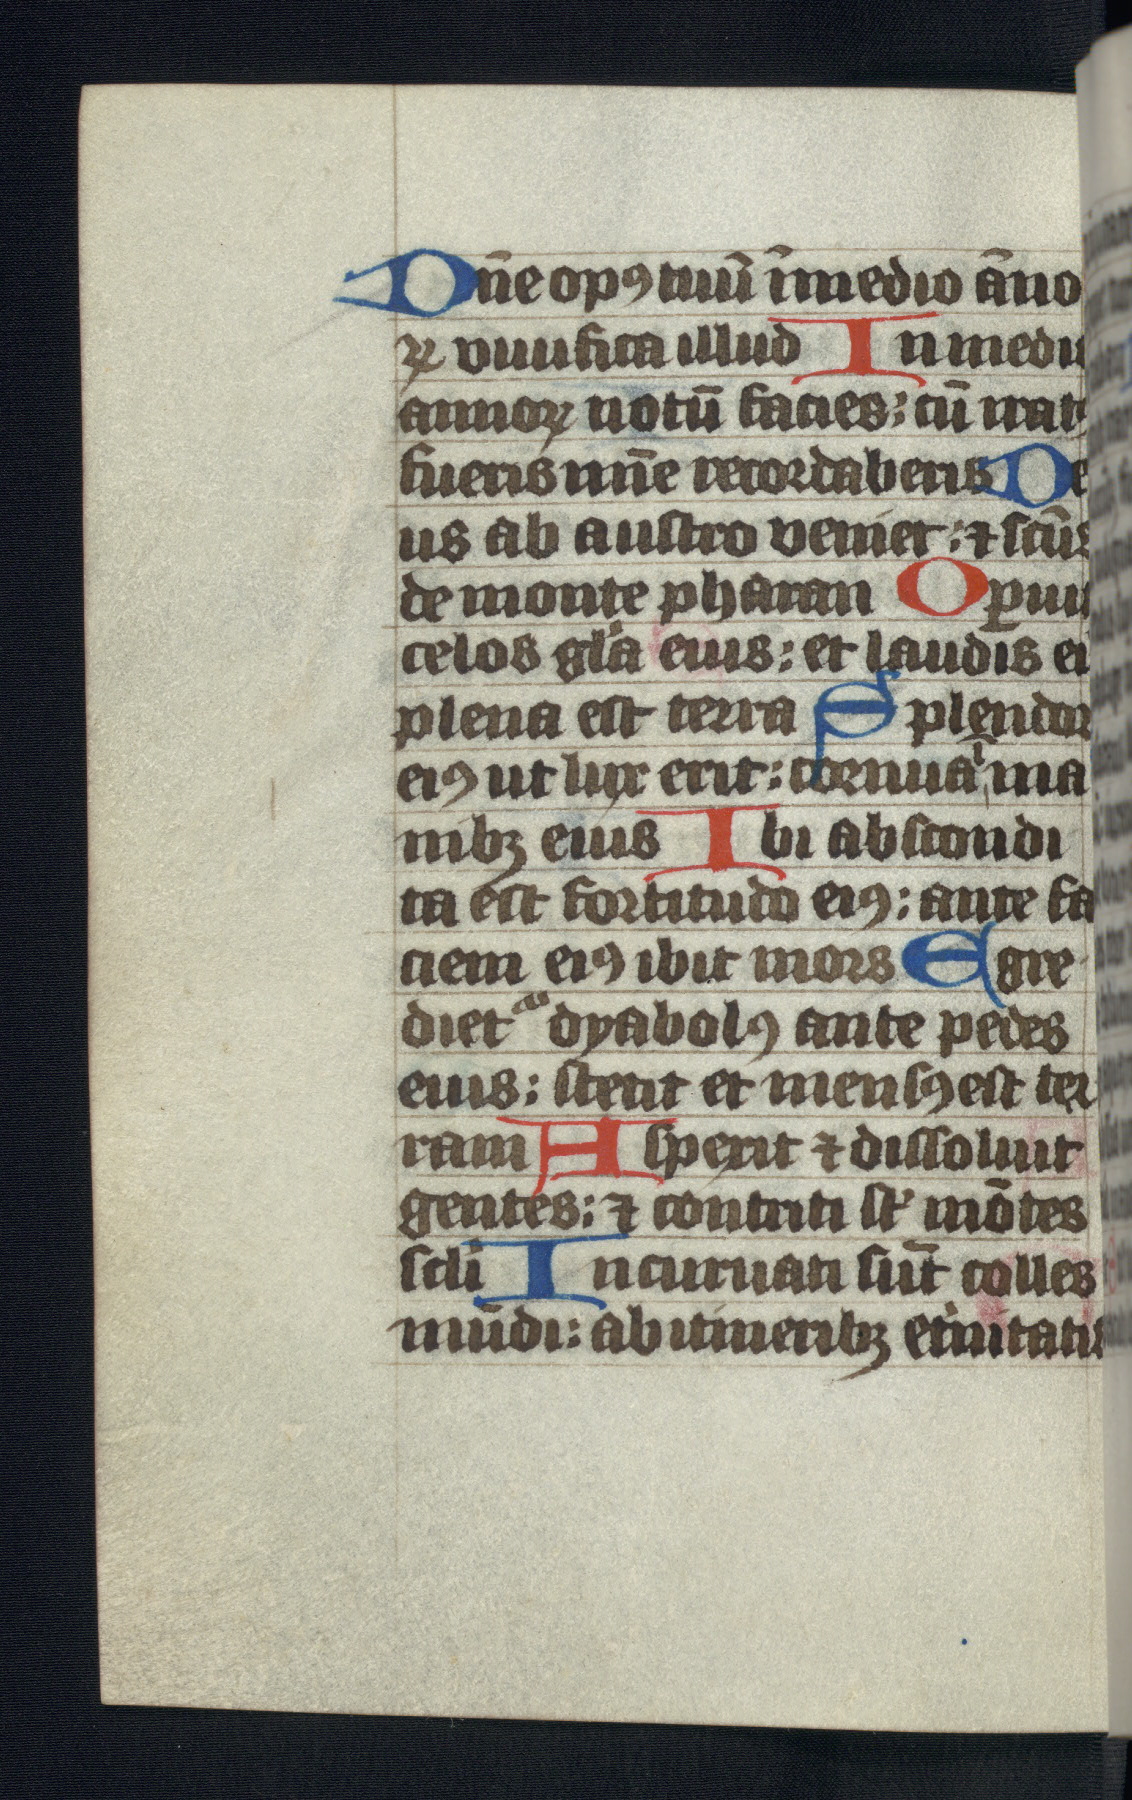 Dn̄e opꝰ tuū ī medio āno
ꝝ viuifica illud In mediͦ
annoꝝ notū facies: cū iratꝰ
fueris mīe recordaberis De
us ab austro veniet: ⁊ scūs
de monte pharan Operuit
celos gl̓a eius: et laudis ei
plena est terra Splendor
eiꝰ ut lux erit: cornua ī ma
nibꝫ eius Ibi abscondi
ta est fortitudo eiꝰ: ante fa
ciem eiꝰ ibit mors Egre
dietᷓ dyabolꝰ ante pedes
eius: stetit et mensꝰ est ter
ram Aspexit ⁊ dissoluit
gentes: ⁊ contriti st̓ mōtes
scl̓i Incuruati sūt colles
mūdi: ab itineribꝫ et̓nitatis